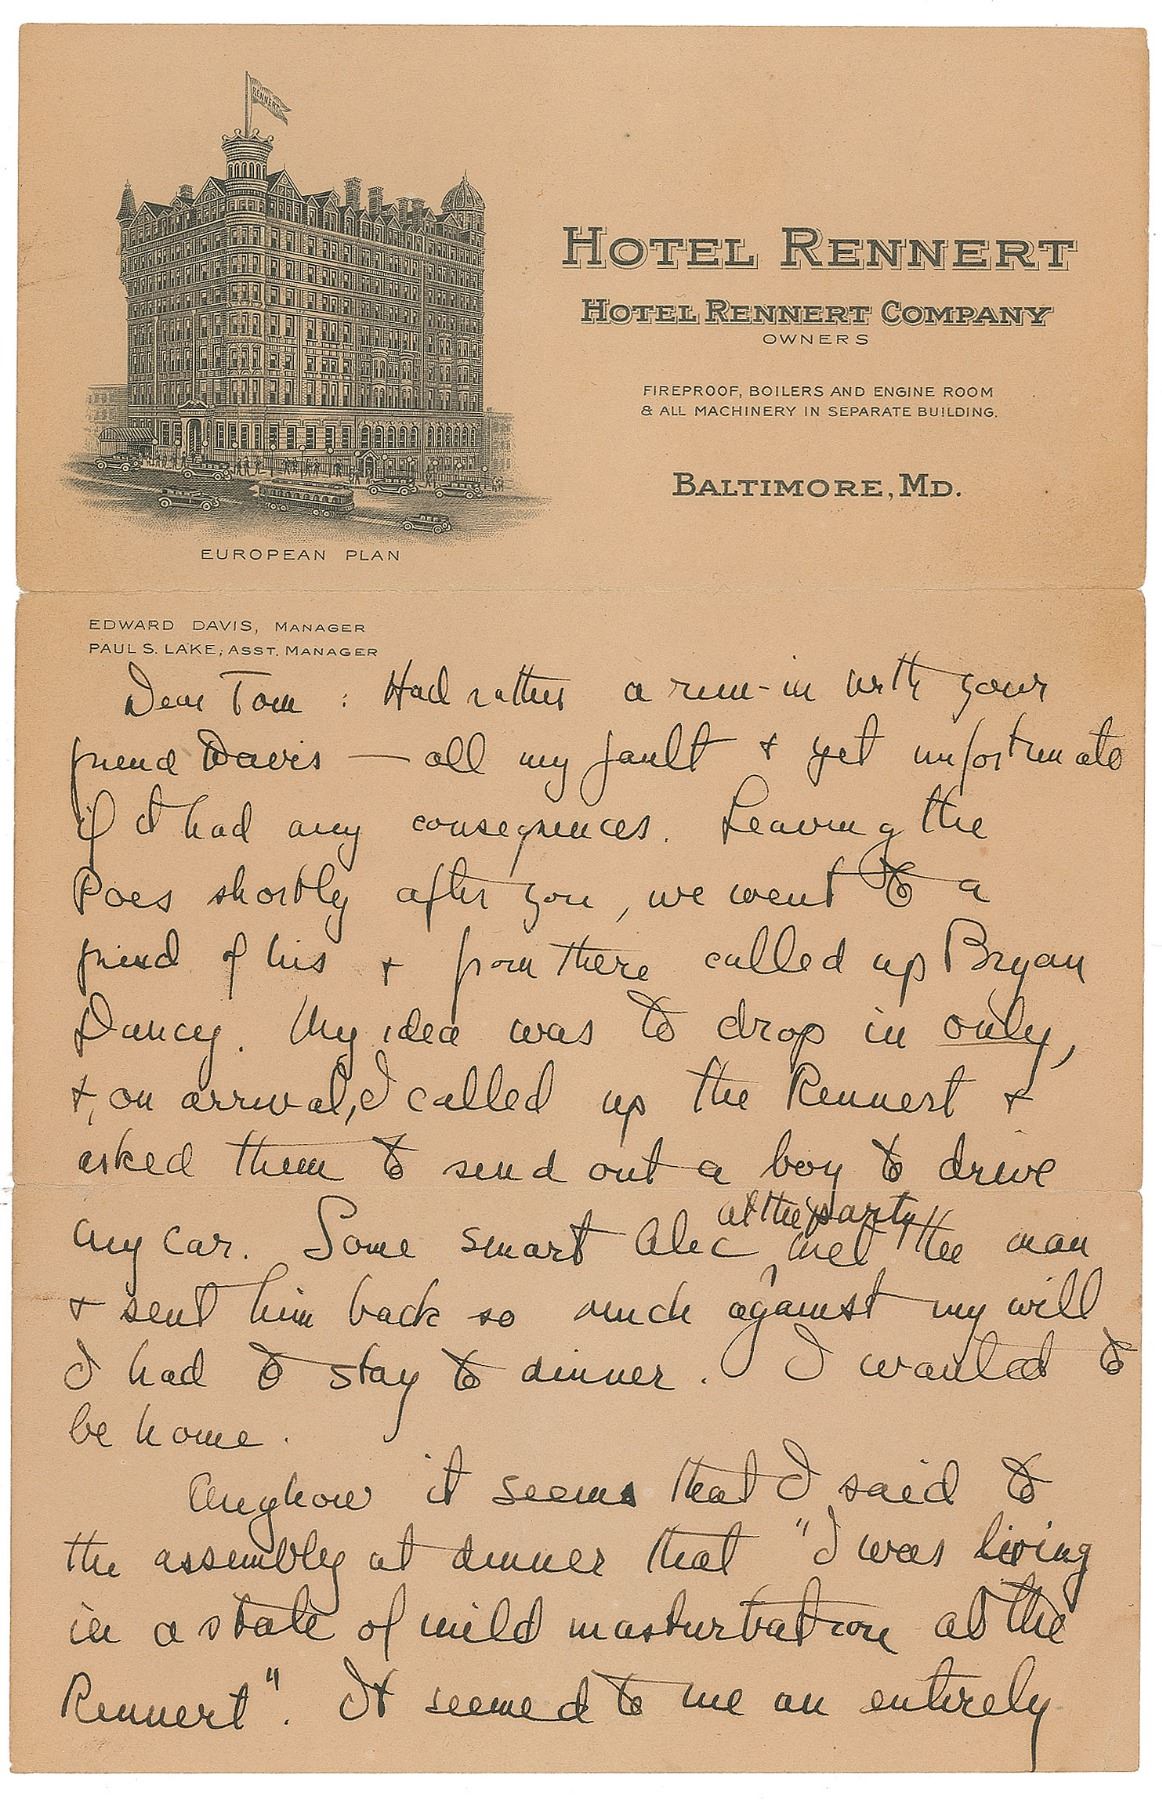 RENNERT
HOTEL RENNERT
HOTEL RENNERT COMPANY
OWNERS
FIREPROOF, BOILERS AND ENGINE ROOM
& ALL MACHINERY IN SEPARATE BUILDING.
BALTIMORE, MD.
EUROPEAN PLAN
EDWARD DAVIS, MANAGER
PAUL S. LAKE, ASST. MANAGER
Dear Tom : Had rather a run-in with your
friend Davis — all my fault & yet unfortunate
if it had any consequences. Leaving the
Poes shortly after you, we went to a
friend of his & from there called up Bryan
Dancy. My idea was to drop in only,
&, on arrival, I called up the Rennert &
asked them to send out a boy to drive
my car. Some smart Alec at the party met the man
& sent him back so much against my will
I had to stay to dinner. I wanted to
be home.
Anyhow it seems that I said to
the assembly at dinner that "I was living
in a state of mild masturbation at the
Rennert". It seemed to me an entirely